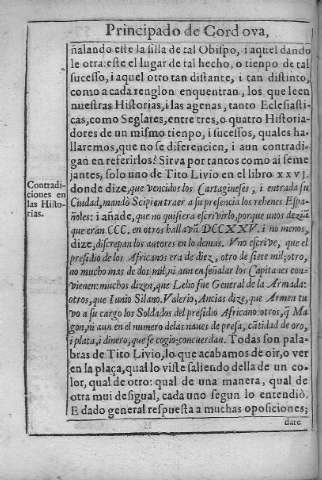 Principado de Cordova,
ñalando este la silla de tal Obispo, i aquel dando
le otra: este el lugar de tal hecho, o tiempo de tal
sucesso, i aquel otro tan distante, i tan distinto,
como a cada renglon enquentran, los que leen
nuestras Historias, i las agenas, tanto Eclesiasti-
cas, como Seglares, entre tres, o quatro Historia-
dores de un mismo tiempo, i sucessos, quales ha-
llaremos, que no se diferencien, i aun contradi-
gan en referirlos? Sirva por tantos como ai seme
jantes, solo uno de Tito Livio en el libro xxvj.
donde dize, que vencidos los Cartagineses, i entrada su
Ciudad, mandò Scipion traer a su presencia los rehenes Espa-
ñoles: i añade, que no quisiera escrivirlo, porque unos dezian
que eran CCC. en otros hallava DCCXXV. i no menos,
dize, discrepan los autores en lo demas. Uno escrive, que el
presidio de los Africanos era de diez, otro de siete mil; otro,
no mucho mas de dos mil, ni aun en señalar los Capitanes con-
vienen: muchos dizen, que Lelio fue General de la Armada:
otros, que Iunio Silano. Valerio, Ancias dize, que Armen tu
vo a su cargo los Soldados del presidio Africano: otros, q̃ Ma
gon, ni aun en el numero de las naves de presa, cãtidad de oro,
i plata, i dinero, que se cogio; concuerdan. Todas son pala-
bras de Tito Livio, lo que acabamos de oir, o ver
en la plaça, qual lo viste saliendo della de un co-
lor, qual de otro: qual de una manera, qual de
otra mui desigual, cada uno segun lo entendiò.
E dado general respuesta a muchas oposiciones;
dare
Contradi-
ciones en
las Histo-
rias.